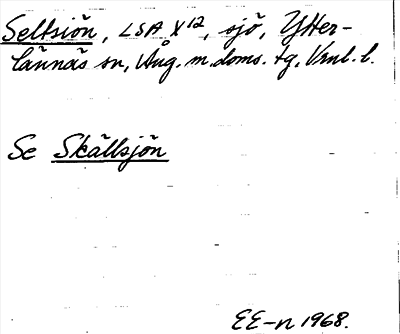 Seltsiön, LSA X¹², sjö, Ytter-
lännäs sn, Ång. m. doms. tg, Vrnl. l.
Se Skällsjön
EE-n 1968.